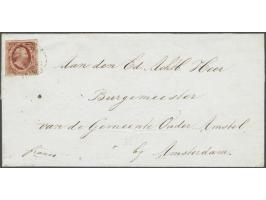 Aan den Ed. Achtb. Heer
Burgemeester
van de Gemeente Ouder Amstel
by Amsterdam.
franco